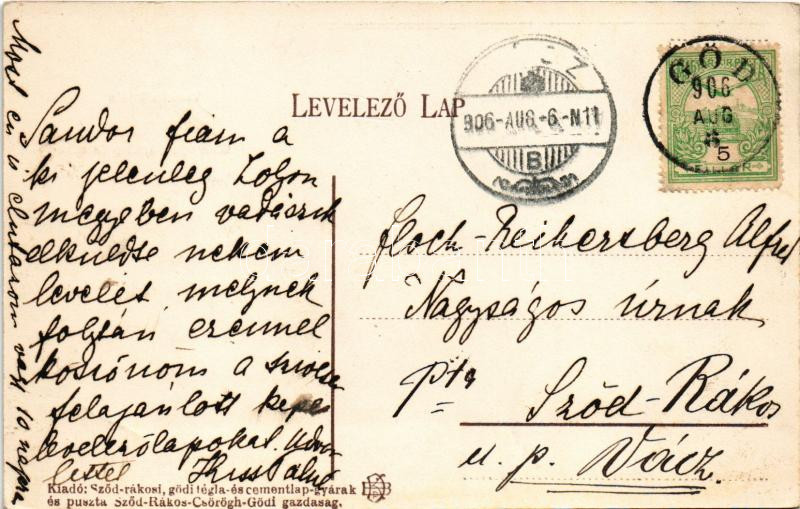 LEVELEZŐ LAP
906-AUG.-6.-N11
B
GÖD
906
AUG
5
Sandor fiam a
ki jelenleg Zolyom
megyeben vadászik
elküldte nekem
levelét melynek
folytán ezennel
köszönöm a szives
felajánlott képes
levelezőlapokat. Üdvöz
lettel
Most en is elutazom vagy 10 napra
Floch-Reihersberg Alfred
Nagyságos úrnak
pta
Sződ-Rákos
u. p. Vácz
Kiadó: Sződ-rákosi, gödi tégla-és cementlap-gyárak
és puszta Sződ-Rákos-Csörögh-Gödi gazdaság.